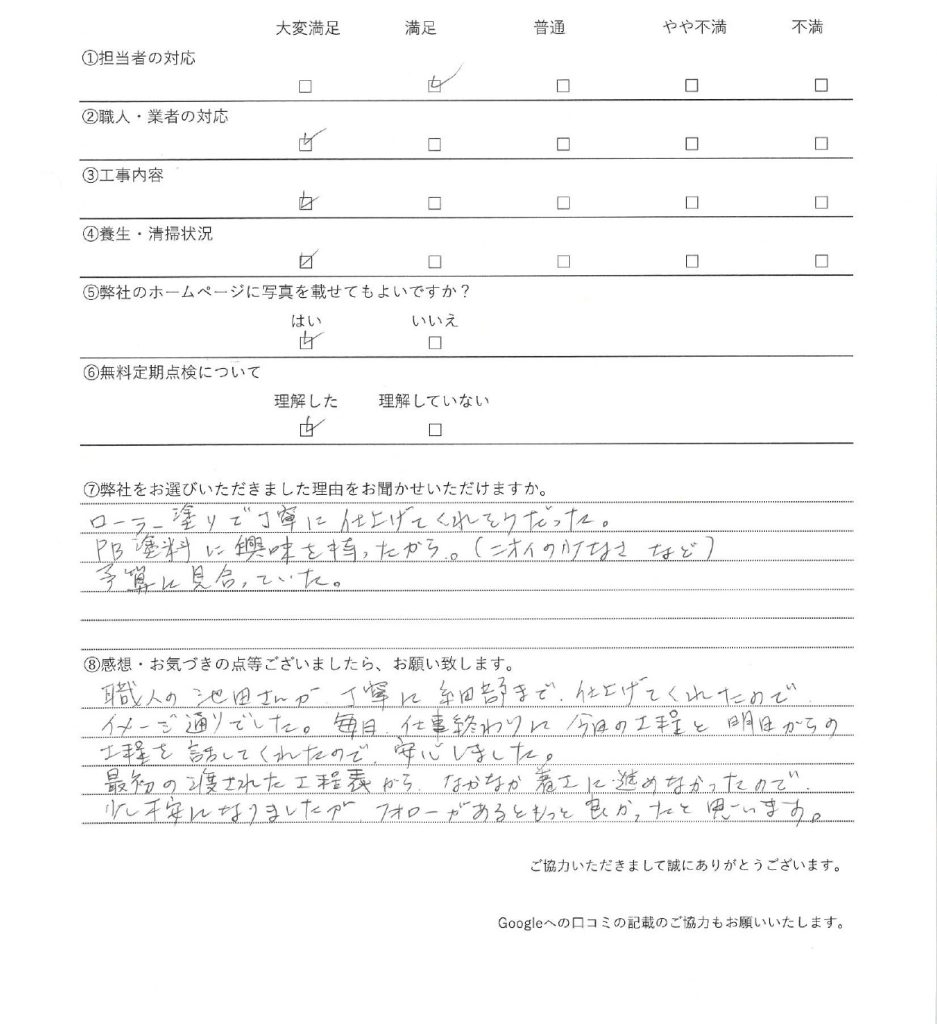 大変満足 満足 普通 やや不満 不満
①担当者の対応
□ ☑ □ □ □
②職人・業者の対応
☑ □ □ □ □
③工事内容
☑ □ □ □ □
④養生・清掃状況
☑ □ □ □ □
⑤弊社のホームページに写真を載せてもよいですか？
はい いいえ
☑ □
⑥無料定期点検について
理解した 理解していない
☑ □
⑦弊社をお選びいただきました理由をお聞かせいただけますか。
ローラー塗りで丁寧に仕上げてくれそうだった。
PB塗料に興味を持ったから。(ニオイの少なさ など)
予算に見合っていた。
⑧感想・お気づきの点等ございましたら、お願い致します。
職人の池田さんが、丁寧に細部まで、仕上げてくれたので
イメージ通りでした。毎日、仕事終わりに今日の工程と明日からの
工程を話してくれたので、安心しました。
最初の渡された工程表から、なかなか着工に進めなかったので、
少し不安になりましたが、フォローがあるともっと良かったと思います。
ご協力いただきまして誠にありがとうございます。
Googleへの口コミの記載のご協力もお願いいたします。